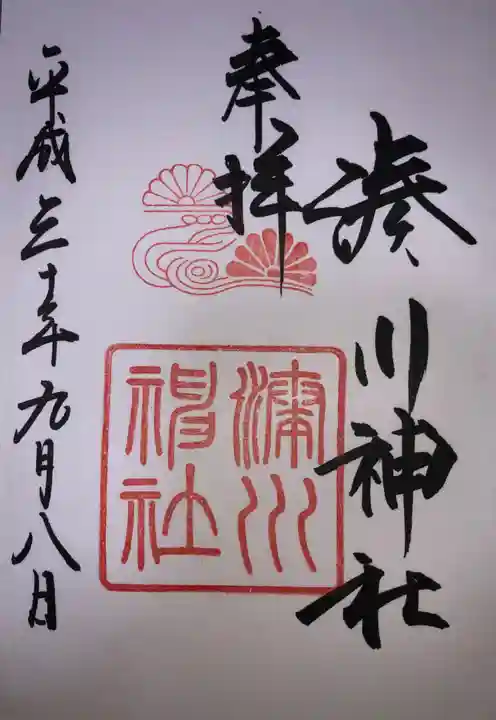 奉拝
湊川神社
湊川
神社
平成三十年九月八日